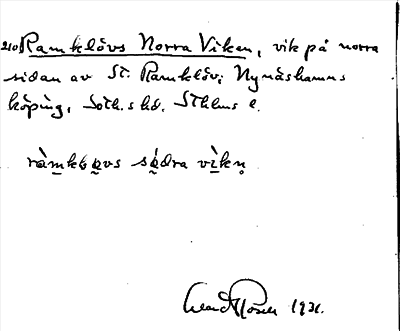 210 Ramklövs Norra Viken, vik på norra
sidan av St. Ramklöv; Nynäshamns
köping, Soth. hd. Sthlms l.
ràm̲kḷøvs sø̀dra vìkn̥
1931.